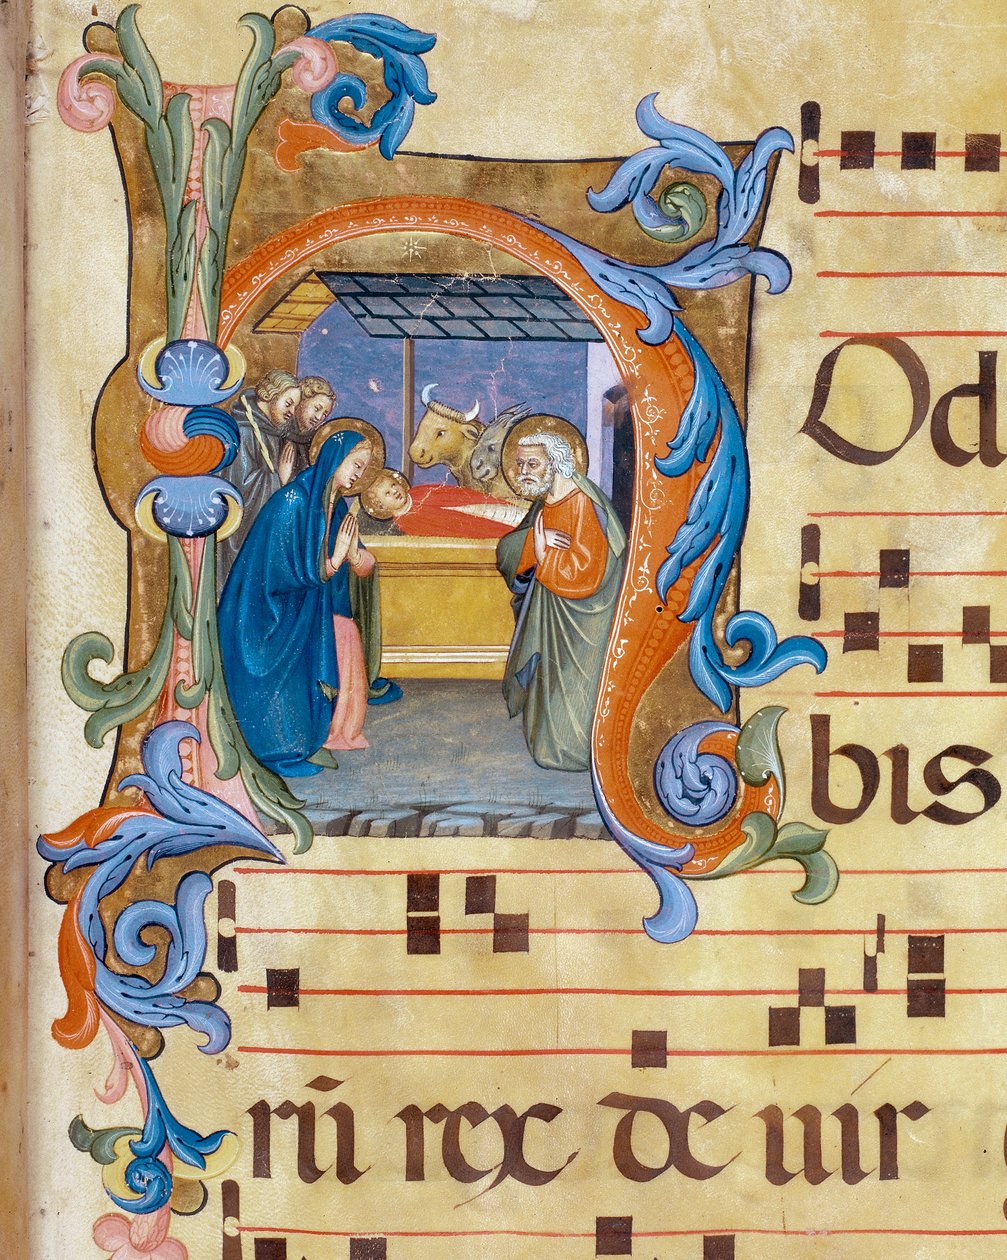 Od
bis
rū rex de uir